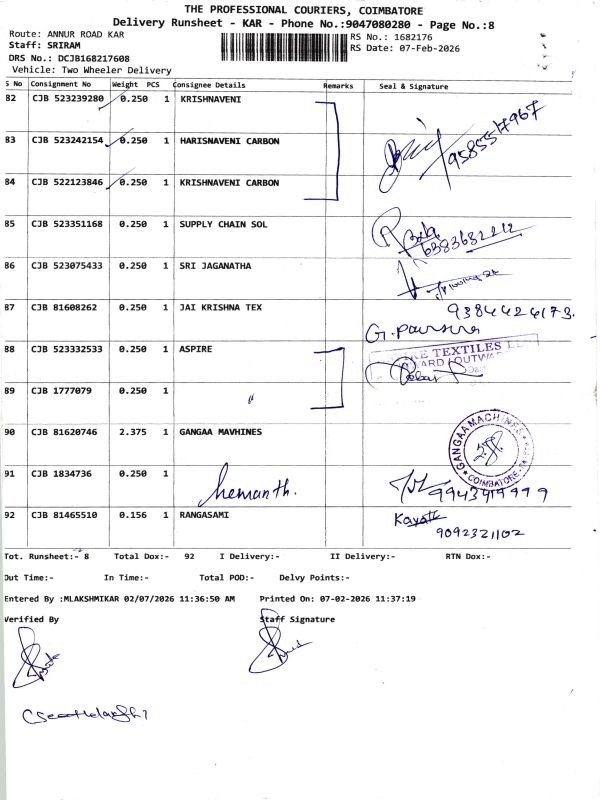 THE PROFESSIONAL COURIERS, COIMBATORE
Delivery Runsheet - KAR - Phone No.:9047080280 - Page No.:8
Route: ANNUR ROAD KAR
RS No.: 1682176
Staff: SRIRAM
RS Date: 07-Feb-2026
DRS No.: DCJB168217608
Vehicle: Two Wheeler Delivery
S No Consignment No Weight PCS Consignee Details Remarks Seal & Signature
82 CJB 523239280 0.250 1 KRISHNAVENI
83 CJB 523242154 0.250 1 HARISNAVENI CARBON 9585517967
84 CJB 522123846 0.250 1 KRISHNAVENI CARBON
85 CJB 523351168 0.250 1 SUPPLY CHAIN SOL 6383682212
86 CJB 523075433 0.250 1 SRI JAGANATHA
87 CJB 81608262 0.250 1 JAI KRISHNA TEX 9384424173.
88 CJB 523332533 0.250 1 ASPIRE TEXTILES
89 CJB 1777079 0.250 1
90 CJB 81620746 2.375 1 GANGAA MAVHINES GANGAA MACHINES COIMBATORE
91 CJB 1834736 0.250 1 Hemanth. 9943419999
92 CJB 81465510 0.156 1 RANGASAMI 9092321102
Tot. Runsheet:- 8 Total Dox:- 92 I Delivery:- II Delivery:- RTN Dox:-
Out Time:- In Time:- Total POD:- Delvy Points:-
Entered By :MLAKSHMIKAR 02/07/2026 11:36:50 AM Printed On: 07-02-2026 11:37:19
Verified By Staff Signature